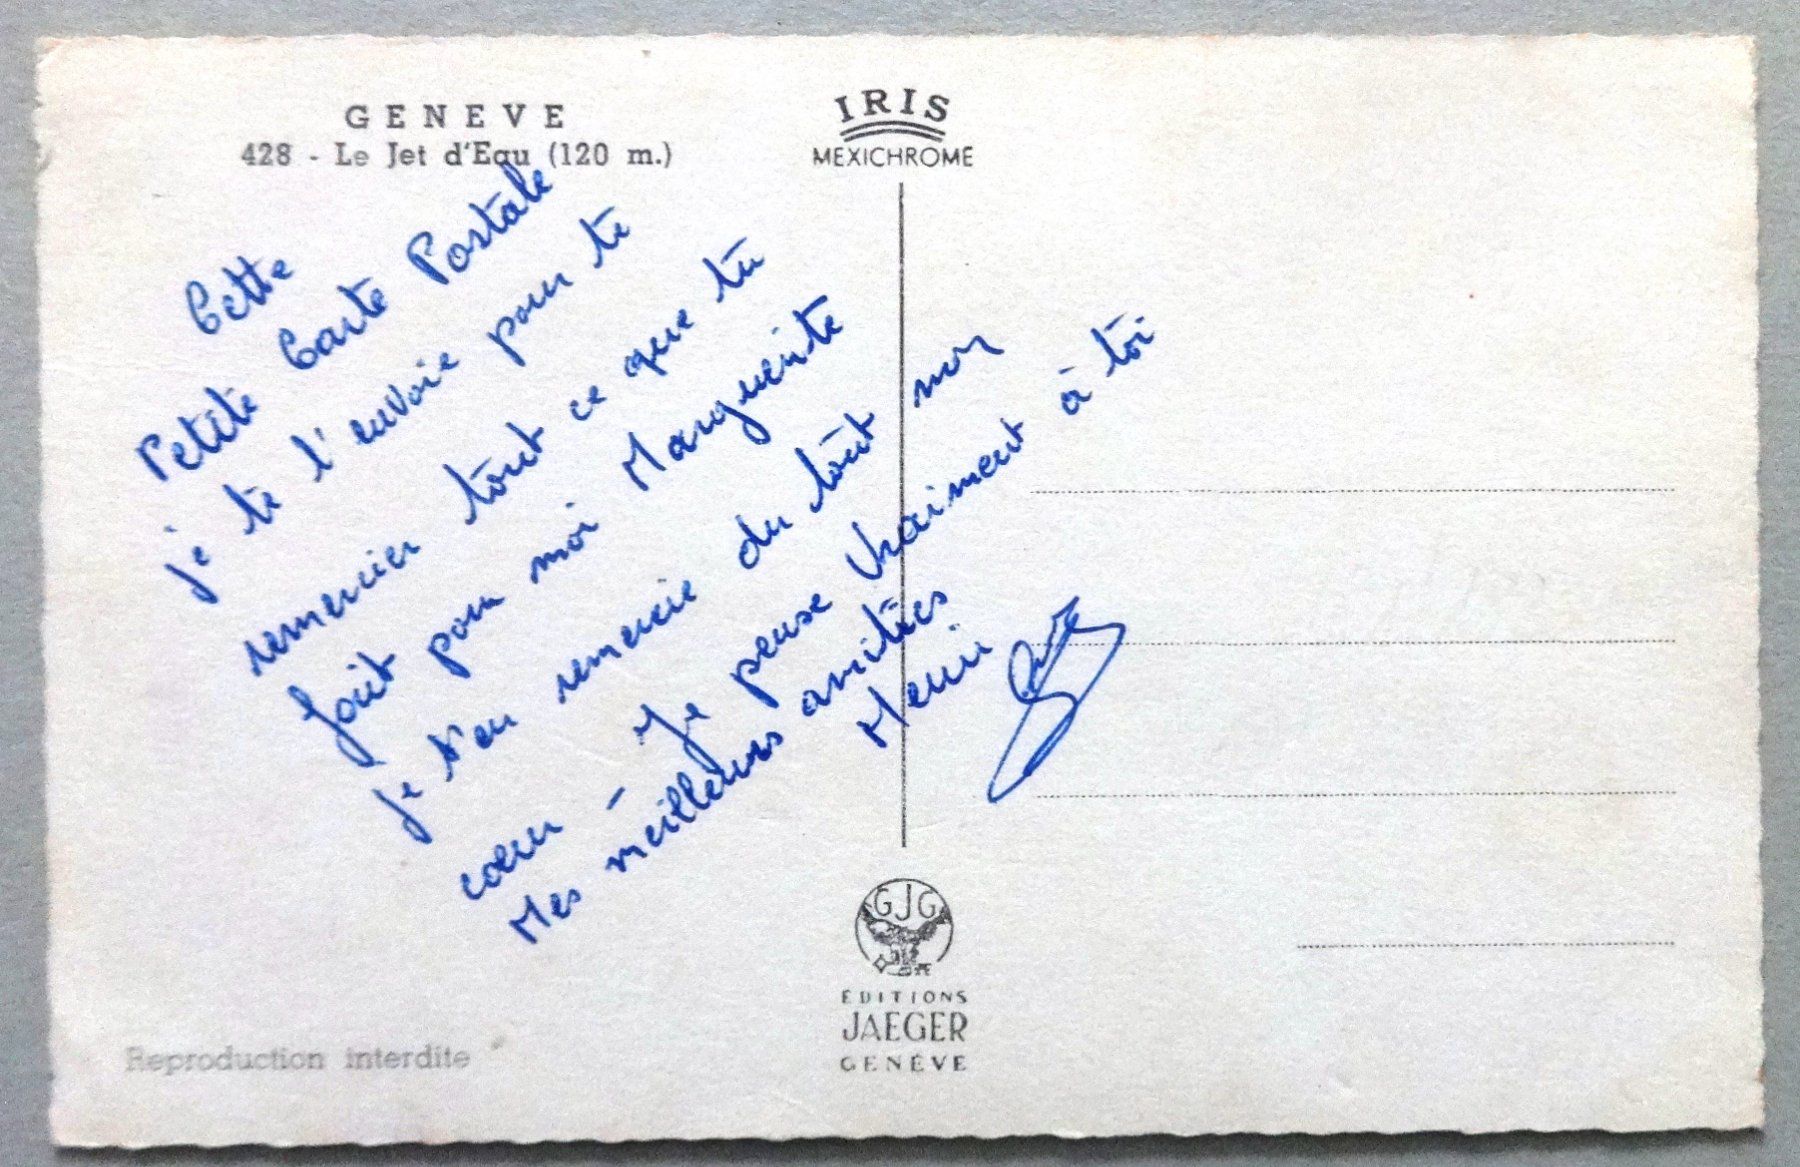 GENEVE
428 - Le Jet d'Eau (120 m.)
IRIS
MEXICHROME
Cette
Petite Carte Postale
je te l'envoie pour te
remercier tout ce que tu
fait pour moi Marguerite
je t'en remercie du tout mon
cœur - Je pense vraiment à toi
Mes meilleurs amitiées
GJG
EDITIONS
JAEGER
GENÈVE
Reproduction interdite